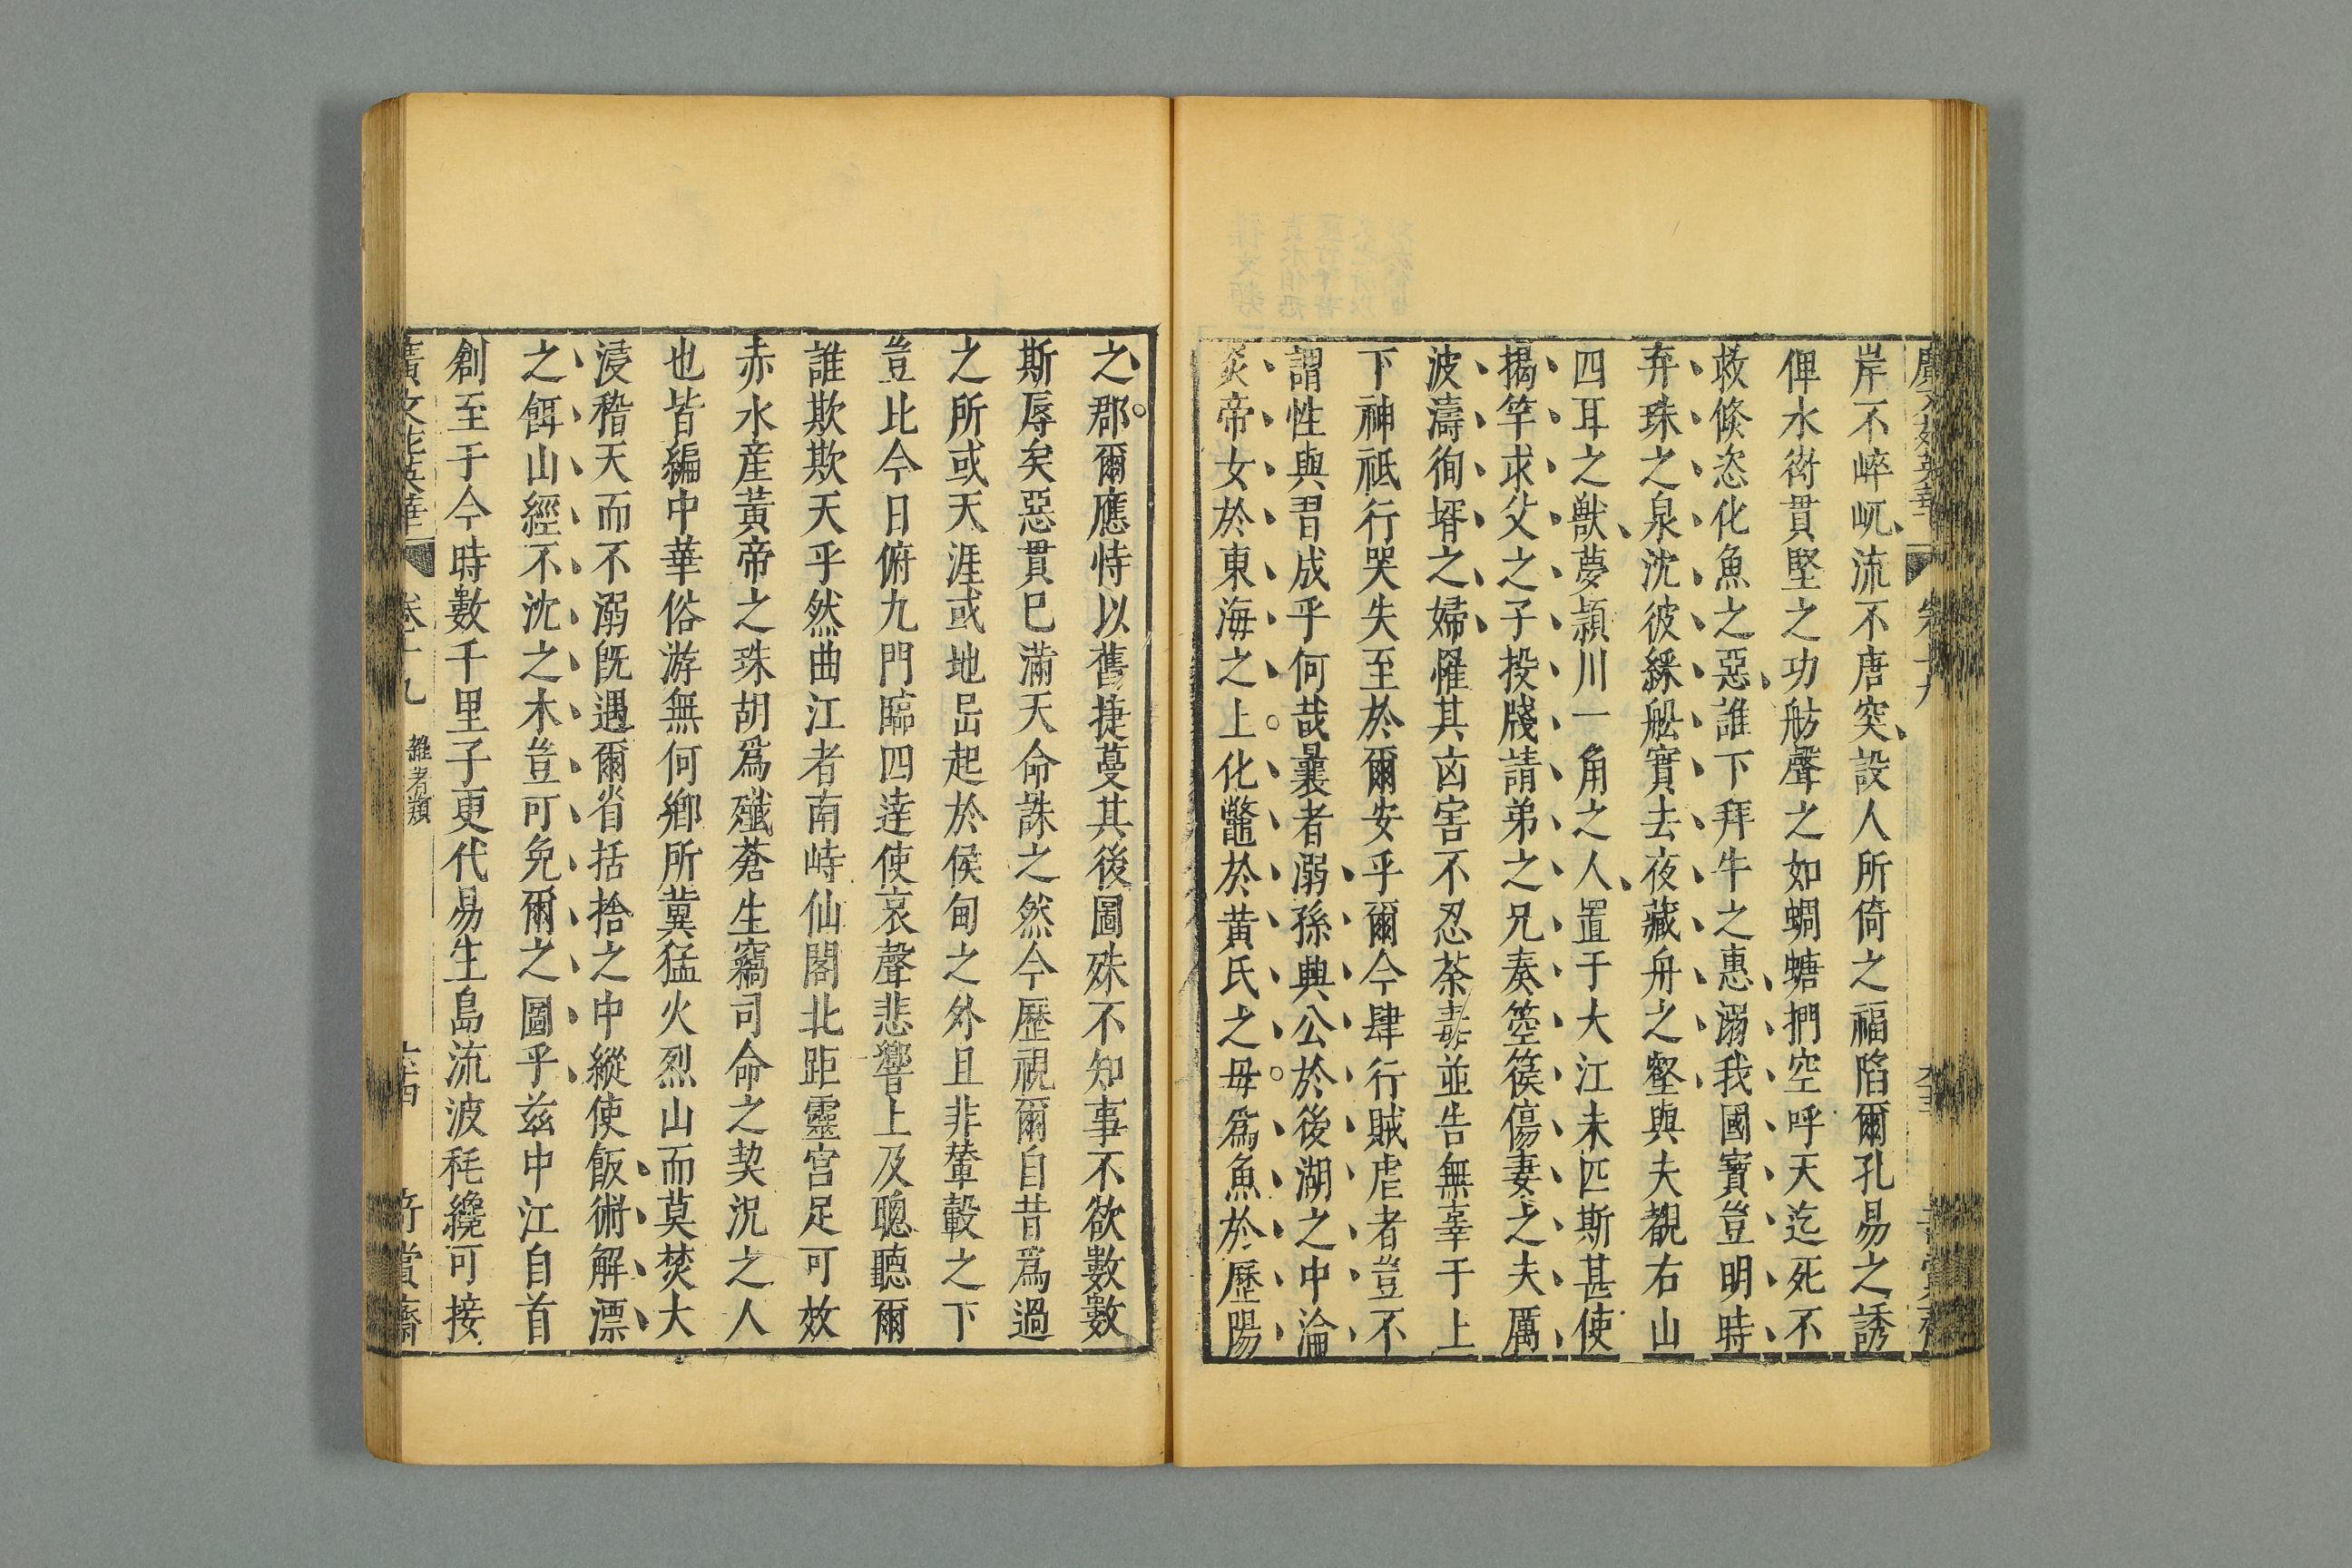 岸不崪屼流不唐突設人所倚之福陷爾孔易之誘
俾水衖貫堅之功舫聲之如蜩螗捫空呼天迄死不
救倏恣化魚之惡誰下拜牛之惠溺我國寶豈明時
弃珠之泉沈彼綵舩實去夜藏舟之壑與夫覩右山
四耳之獸夢潁川一角之人置于大江未匹斯甚使
揭竿求父之子投牋請弟之兄奏箜篌傷妻之夫厲
波濤徇壻之婦罹其凶害不忍荼毒並告無辜于上
下神祗行哭失至於爾安乎爾今肆行賊虐者豈不
謂性與習成乎何哉曩者溺孫興公於後湖之中淪
炎帝女於東海之上化鼈於黃氏之母爲魚於歷陽
之郡爾應恃以舊捷蔓其後圖殊不知事不欲數數
斯辱矣惡貫巳滿天命誅之然今歷視爾自昔爲過
之所或天涯或地岊起於侯甸之外且非輦轂之下
豈比今日俯九門臨四逵使哀聲悲響上及聰聽爾
誰欺欺天乎然曲江者南峙仙閣北距靈宫足可效
赤水産黃帝之珠胡爲殲蒼生竊司命之契況之人
也皆編中華俗游無何鄉所冀猛火烈山而莫焚大
浸稽天而不溺旣遇爾省括捨之中縱使飯術解漂
之餌山經不沈之木豈可免爾之圖乎兹中江自首
創至于今時數千里子更代易生島流波秏纔可接
廣文苑英華 卷十九 雜者類